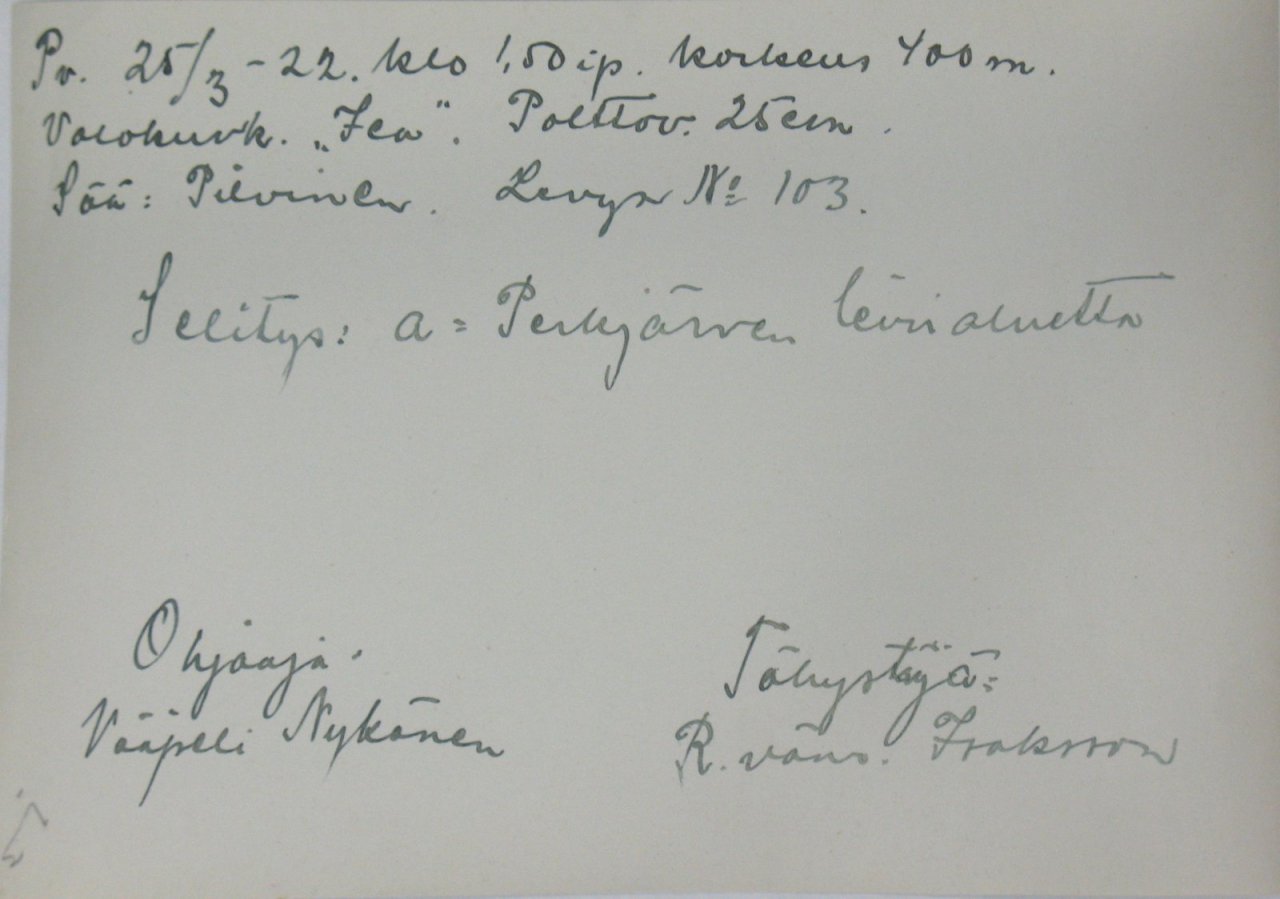 Pv. 25/3 - 22. klo 1,50 ip. korkeus 400 m.
Valokuvk. „Ica". Polttov. 25 cm.
Sää: Pilvinen. Levyn № 103.
Selitys: a = Perkjärven leirialuetta
Ohjaaja:
Vääpeli Nykänen
Tähystäjä:
R. vänr. Isaksson